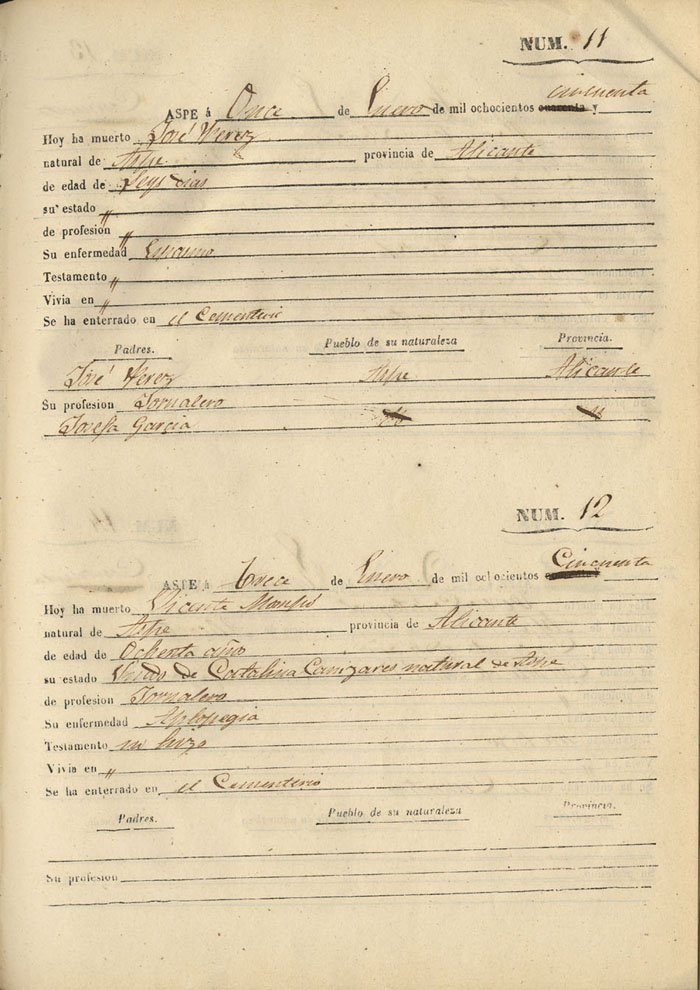 NUM. 11
ASPE á Once de Enero de mil ochocientos cuarenta y cincuenta
Hoy ha muerto José Perez
natural de Aspe provincia de Alicante
de edad de Seys dias
su estado "
de profesion "
Su enfermedad
Testamento "
Vivia en "
Se ha enterrado en el Cementerio
Padres. Pueblo de su naturaleza Provincia.
José Perez Aspe Alicante
Su profesion Jornalero
Josefa Garcia
NUM. 12
ASPE á Trece de Enero de mil ochocientos Cincuenta
Hoy ha muerto Vicente
natural de Aspe provincia de Alicante
de edad de Ochenta año
su estado Viudo de Catalina Canizares natural de Aspe
de profesion Jornalero
Su enfermedad Aplopegia
Testamento no hizo
Vivia en "
Se ha enterrado en el Cementerio
Padres. Pueblo de su naturaleza Provincia.
Su profesion